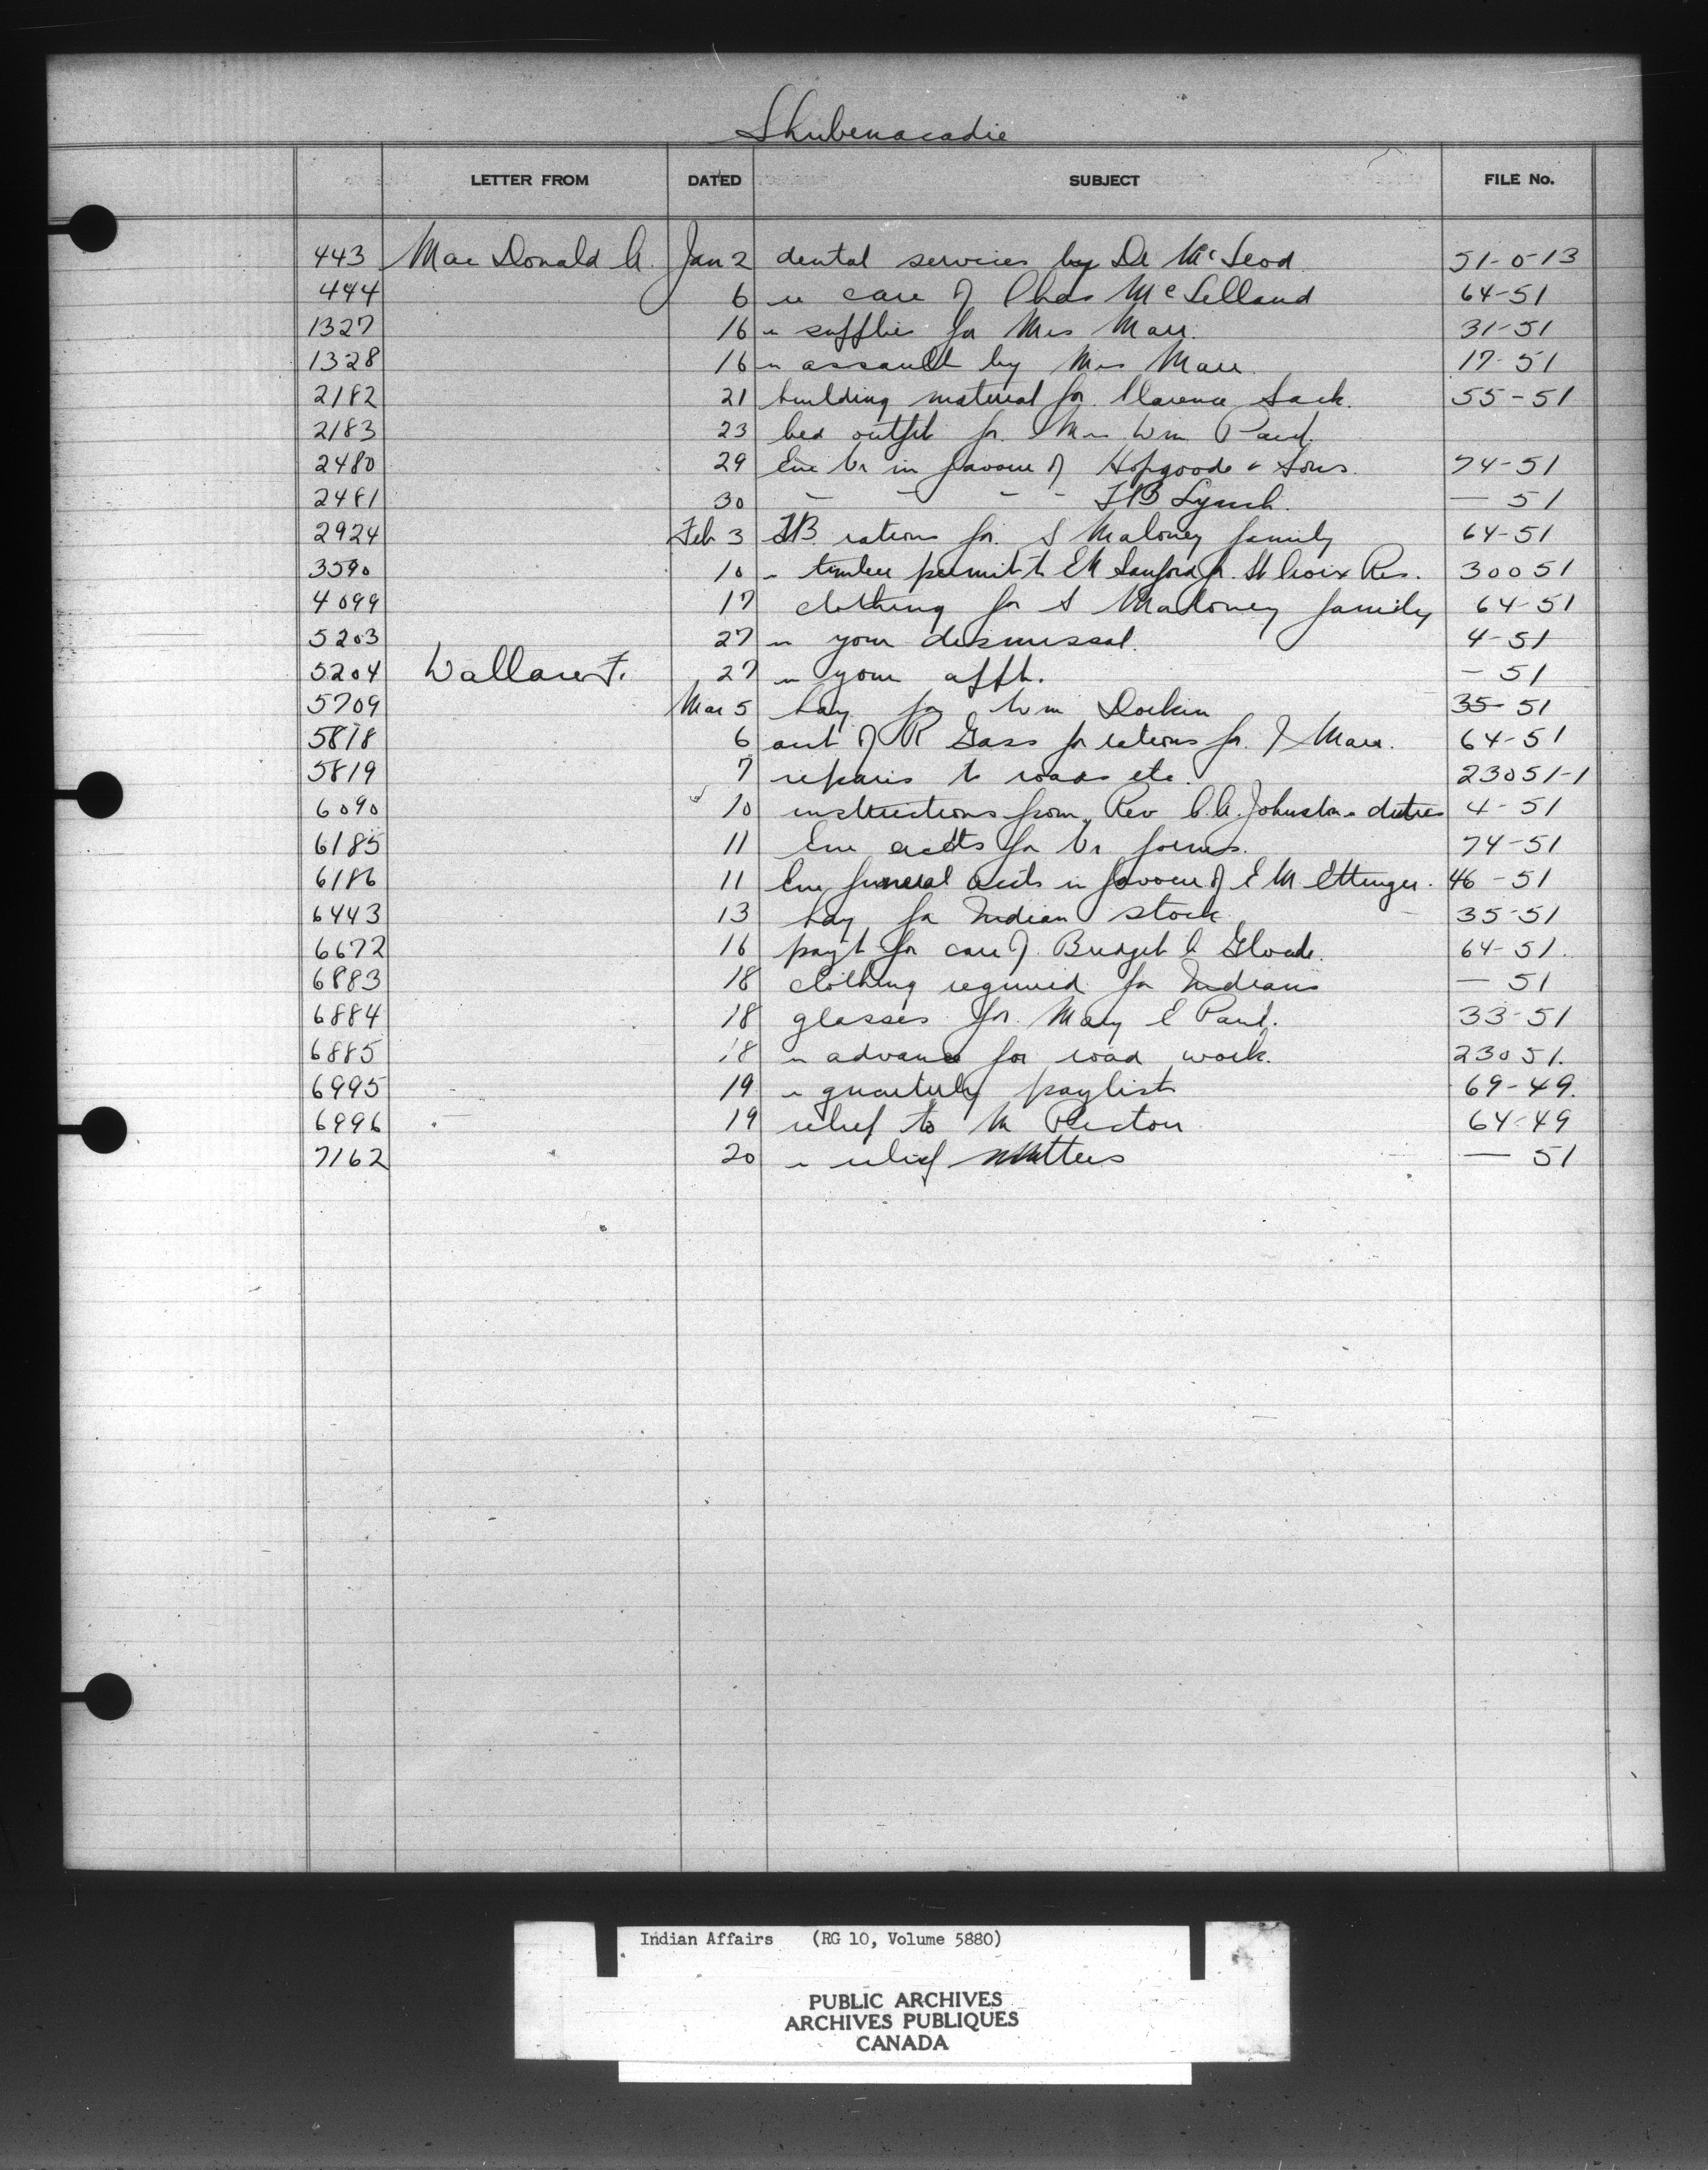 Shubenacadie
LETTER FROM DATED SUBJECT FILE No.
443 MacDonald A. Jan 2 dental services by Dr McLeod 51-0-13
444 6 re care of Chas McLelland 64-51
1327 16 re supplies for Mrs Marr. 31-51
1328 16 re assault by Mrs Marr. 17-51
2182 21 building material for Clarence Sack. 55-51
2183 23 bed outfit for Mrs Wm Paul.
2480 29 Enc Vr in favour of Hopgoode & Sons. 74-51
2481 30 - - - - Lynch. — 51
2924 Feb 3 rations for S Maloney family 64-51
3590 10 re timber permit to E M Sanford for St Croix Res. 30051
4099 17 clothing for S Maloney family 64-51
5203 27 re your dismissal. 4-51
5204 Wallace F. 27 re your appt. — 51
5709 Mar 5 hay for Wm 35-51
5818 6 acct of R Gass for rations for J Marr. 64-51
5819 7 repairs to roads etc. 23051-1
6090 10 instructions from Rev Johnston re duties 4-51
6185 11 Enc accts for Vr forms. 74-51
6186 11 Enc funeral accts in favour of E M Ettinger. 46-51
6443 13 hay for Indian stock 35-51
6672 16 payt for care of Bridget C Gloade. 64-51.
6883 18 clothing required for Indians — 51
6884 18 glasses for Mary E Paul. 33-51
6885 18 re advance for road work. 23051.
6995 19 re quarterly paylist 69-49.
6996 19 relief to M Pictou 64-49
7162 20 re relief matters — 51
Indian Affairs (RG 10, Volume 5880)
PUBLIC ARCHIVES
ARCHIVES PUBLIQUES
CANADA